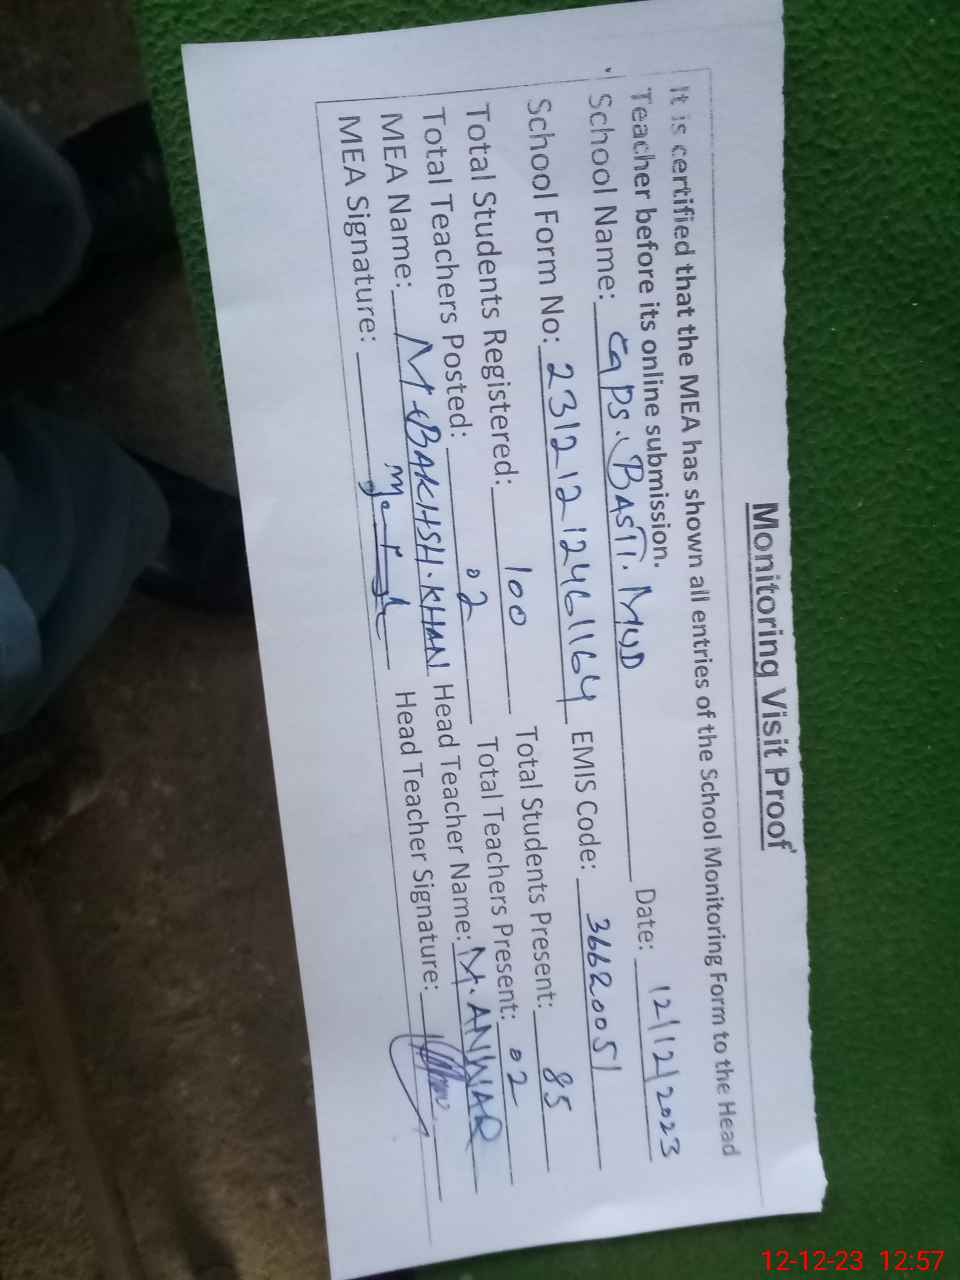 Monitoring Visit Proof
It is certified that the MEA has shown all entries of the School Monitoring Form to the Head
Teacher before its online submission.
School Name: GPS. BASTI. MUD Date: 12/12/2023
School Form No: 23121212461164 EMIS Code: 36620051
Total Students Registered: 100 Total Students Present: 85
Total Teachers Posted: 02 Total Teachers Present: 02
MEA Name: M. BAKHSH. KHAN Head Teacher Name: M. ANWAR
MEA Signature: Head Teacher Signature:
12-12-23 12:57